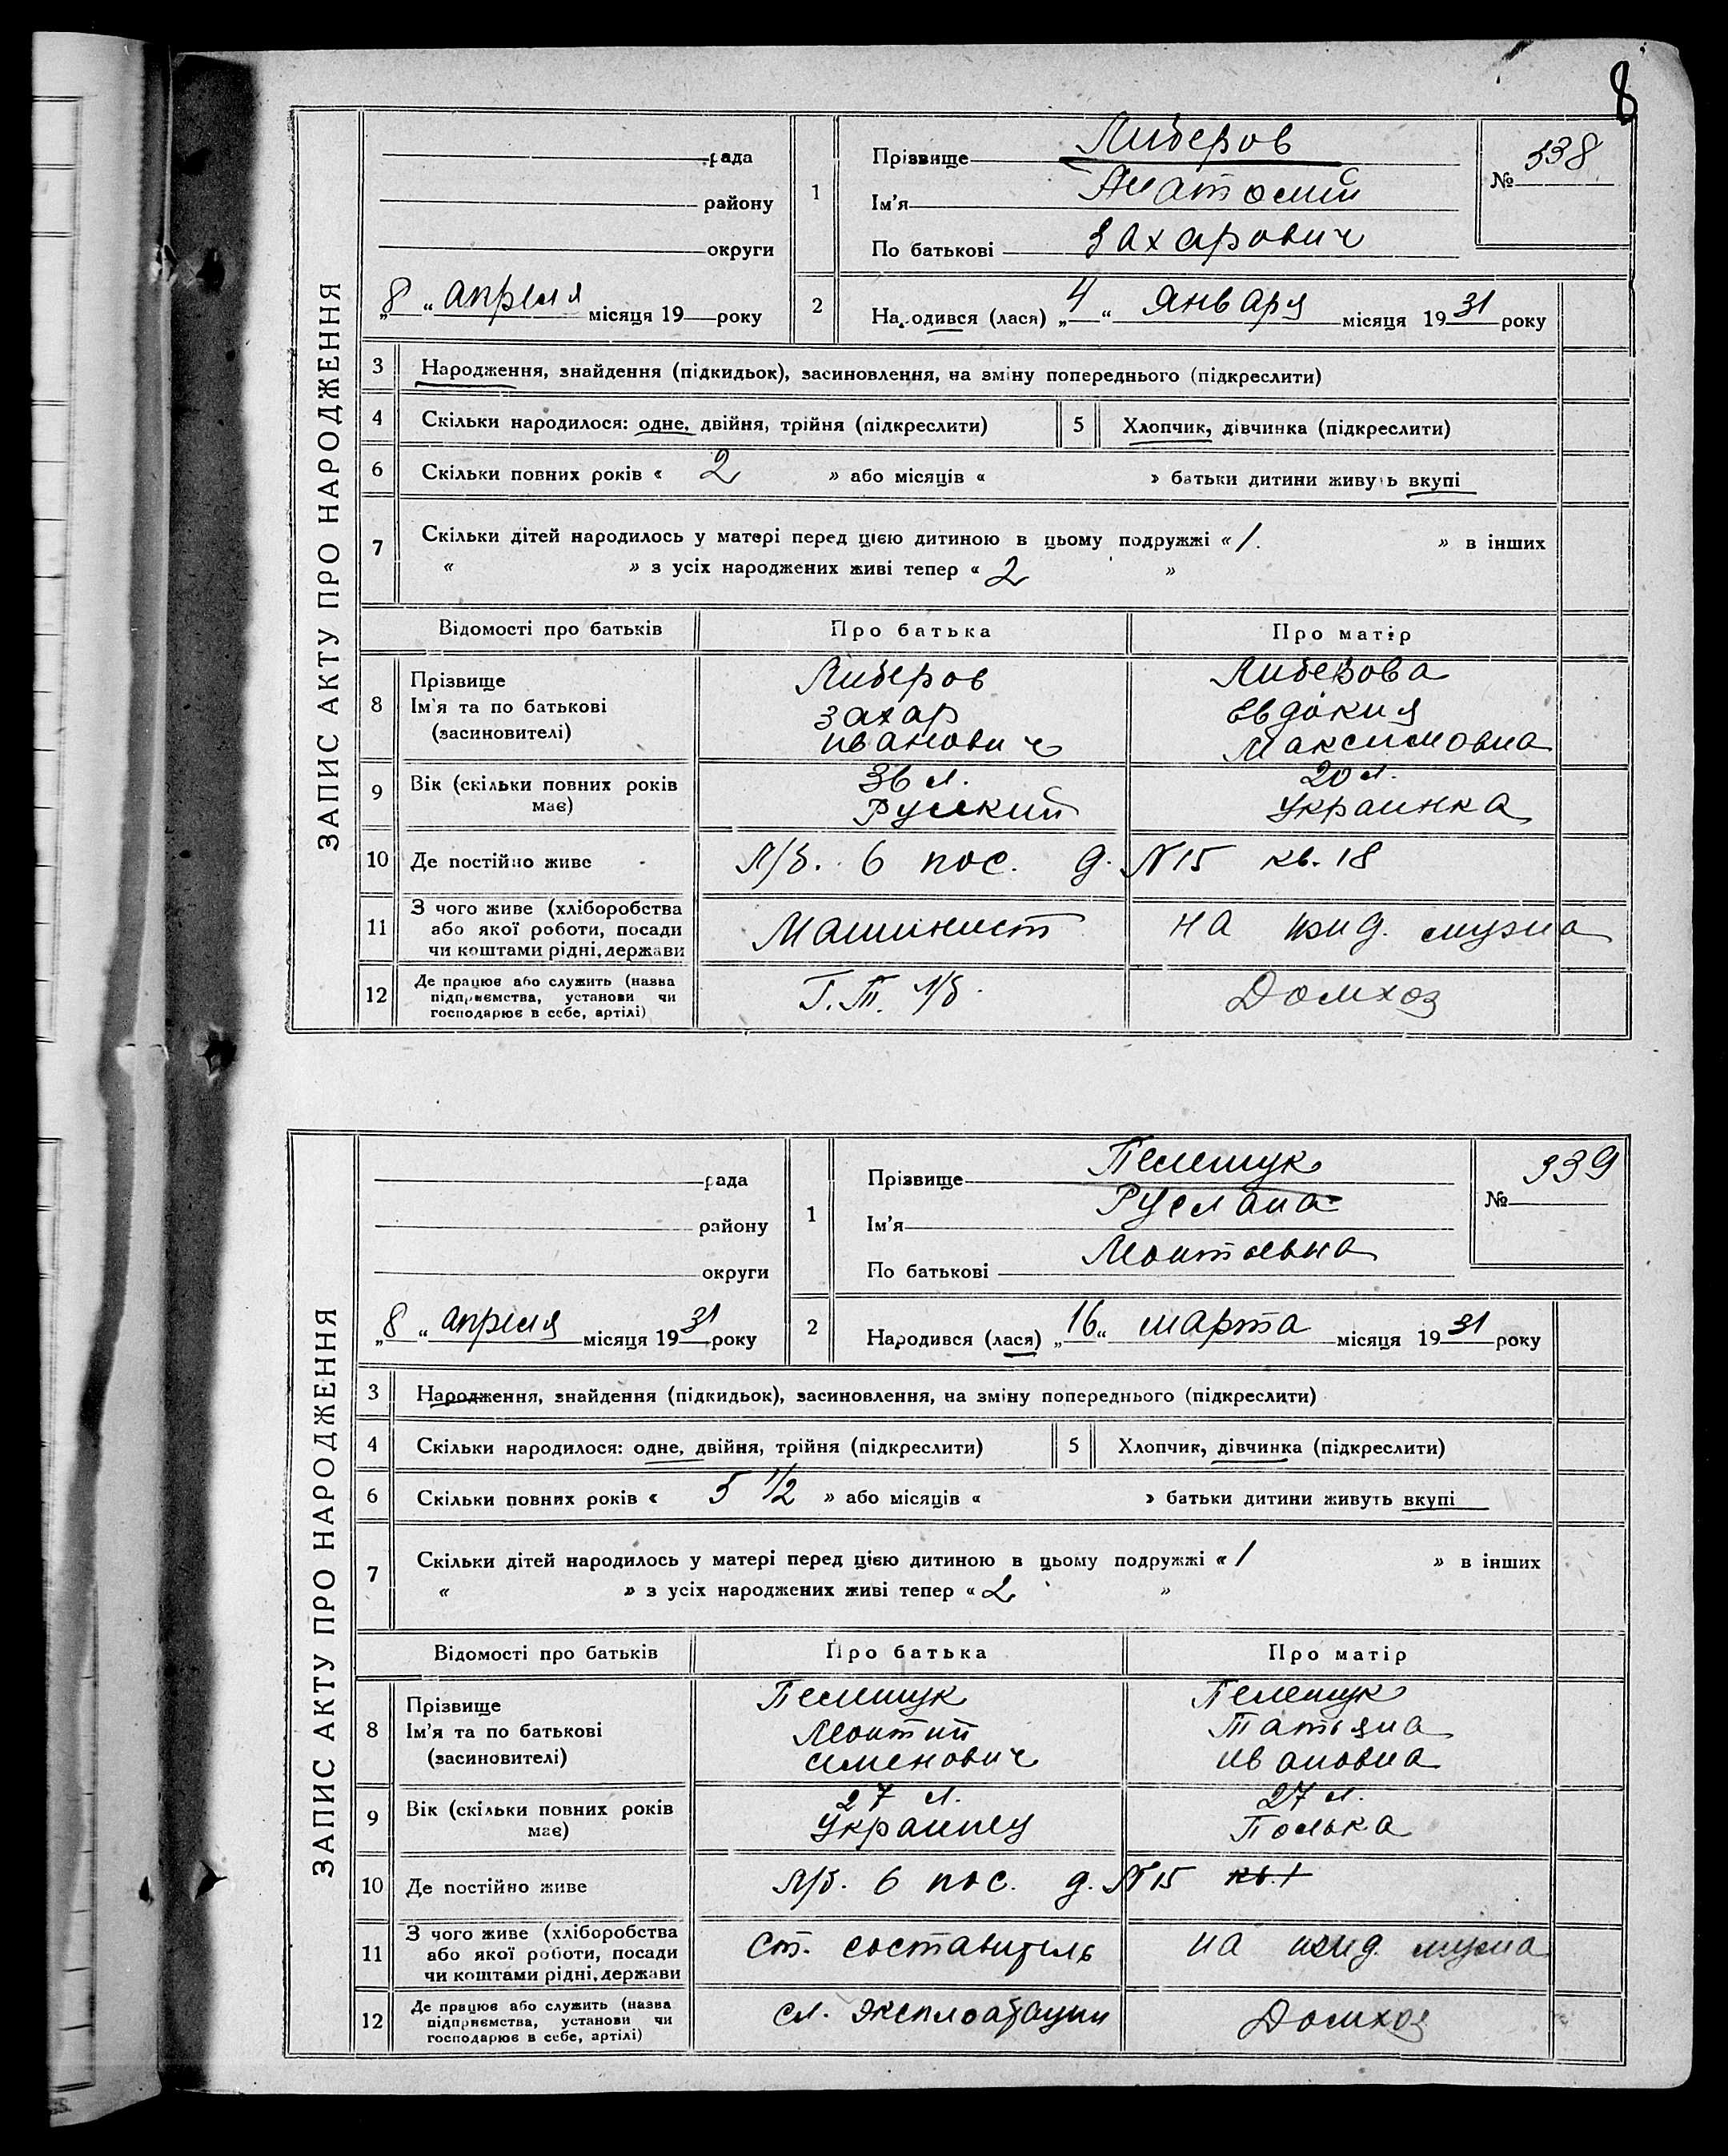 8
ЗАПИС АКТУ ПРО НАРОДЖЕННЯ
рада
району
округи
„8“ апреля місяця 19 року
1
Прізвище Либеров
Ім'я Анатолий
По батькові Захарович
№ 338
2
Народився (лася) „4“ января місяця 1931 року
3 Народження, знайдення (підкидьок), засиновлення, на зміну попереднього (підкреслити)
4 Скільки народилося: одне, двійня, трійня (підкреслити) 5 Хлопчик, дівчинка (підкреслити)
6 Скільки повних років « 2 » або місяців « » батьки дитини живуть вкупі
7 Скільки дітей народилось у матері перед цією дитиною в цьому подружжі « 1. » в інших
« » з усіх народжених живі тепер « 2 »
Відомості про батьків Про батька Про матір
8 Прізвище Либеров Либерова
Ім'я та по батькові Захар Евдокия
(засиновителі) Иванович Максимовна
9 Вік (скільки повних років має) 36 л. 20 л.
Русский Украинка
10 Де постійно живе Л/б. 6 пос. д. N15 кв. 18
11 З чого живе (хліборобства
або якої роботи, посади Машинист на ижд. мужа
чи коштами рідні, держави
12 Де працює або служить (назва
підприємства, установи чи Г.Т. Л/б. Домхоз
господарює в себе, артілі)
ЗАПИС АКТУ ПРО НАРОДЖЕННЯ
рада
району
округи
„8“ апреля місяця 1931 року
1
Прізвище Пелешук
Ім'я Руслана
По батькові Леонтьевна
№ 339
2
Народився (лася) „16“ марта місяця 1931 року
3 Народження, знайдення (підкидьок), засиновлення, на зміну попереднього (підкреслити)
4 Скільки народилося: одне, двійня, трійня (підкреслити) 5 Хлопчик, дівчинка (підкреслити)
6 Скільки повних років « 5 1/2 » або місяців « » батьки дитини живуть вкупі
7 Скільки дітей народилось у матері перед цією дитиною в цьому подружжі « 1 » в інших
« » з усіх народжених живі тепер « 2 »
Відомості про батьків Про батька Про матір
8 Прізвище Пелешук Пелешук
Ім'я та по батькові Леонтий Татьяна
(засиновителі) Семенович Ивановна
9 Вік (скільки повних років має) 27 л. 27 л.
Украинец Полька
10 Де постійно живе Л/б. 6 пос. д. N15 кв. 1
11 З чого живе (хліборобства
або якої роботи, посади Ст. составитель на ижд. мужа
чи коштами рідні, держави
12 Де працює або служить (назва
підприємства, установи чи сл. эксплоатации Домхоз
господарює в себе, артілі)